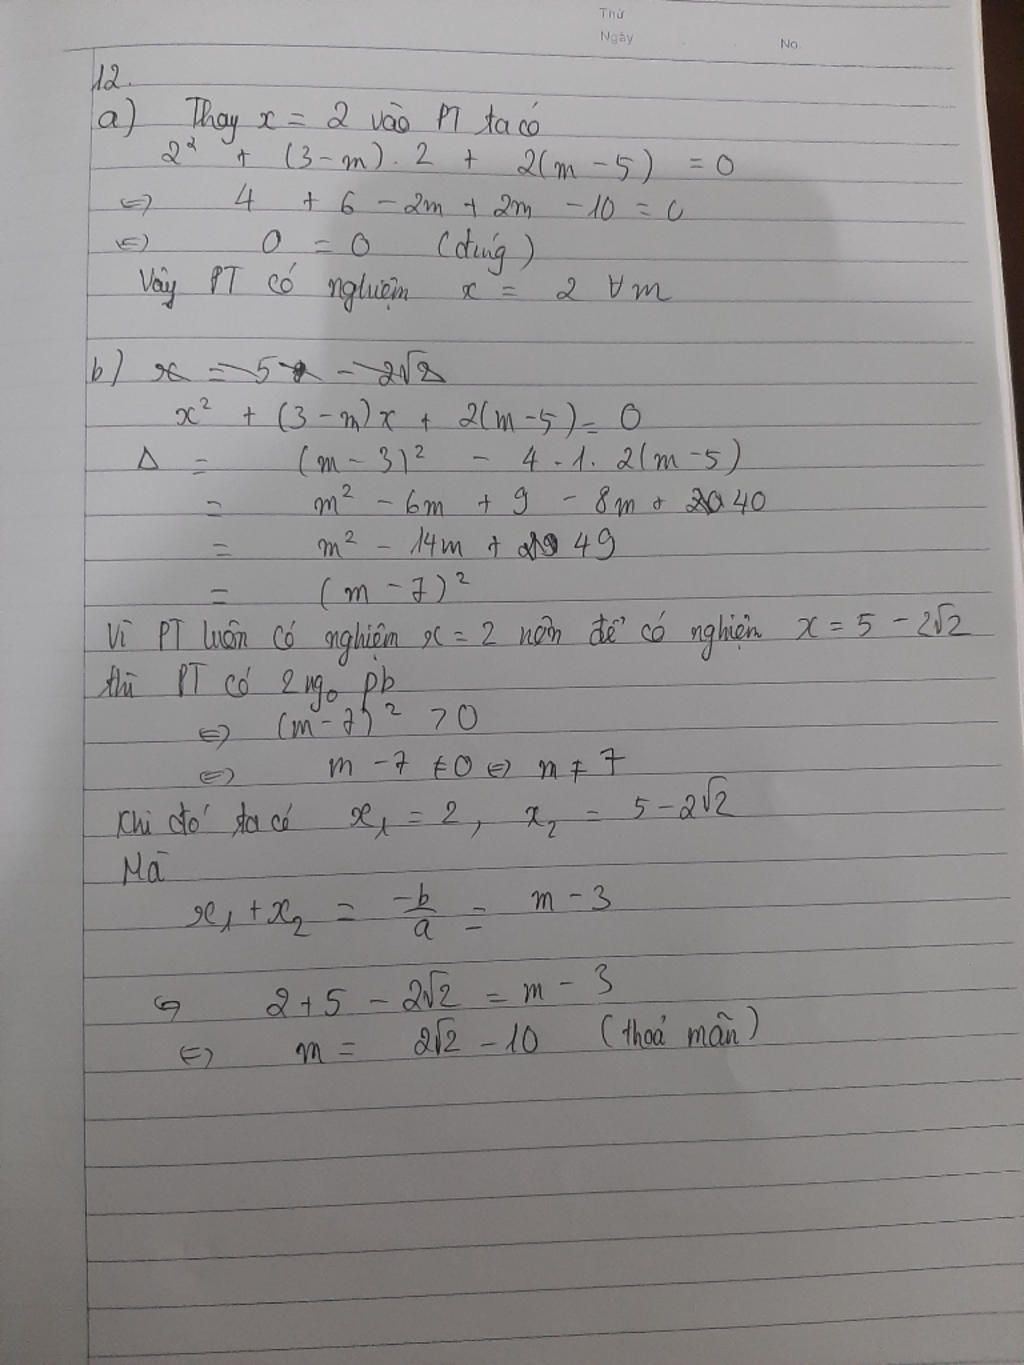 Thứ
Ngày
No.
12.
a) Thay x = 2 vào PT ta có
2² + (3 - m) . 2 + 2(m - 5) = 0
⇔ 4 + 6 - 2m + 2m - 10 = 0
⇔ 0 = 0 (đúng)
Vậy PT có nghiệm x = 2 ∀m
b) x = 5 - 2√2
x² + (3 - m)x + 2(m - 5) = 0
Δ = (m - 3)² - 4 . 1 . 2(m - 5)
= m² - 6m + 9 - 8m + 40
= m² - 14m + 49
= (m - 7)²
Vì PT luôn có nghiệm x = 2 nên để có nghiệm x = 5 - 2√2
thì PT có 2 ngo pb
⇔ (m - 7)² > 0
⇔ m - 7 ≠ 0 ⇔ m ≠ 7
Khi đó ta có x₁ = 2, x₂ = 5 - 2√2
Mà
x₁ + x₂ = -b/a = m - 3
⇔ 2 + 5 - 2√2 = m - 3
⇔ m = 2√2 - 10 (thoả mãn)